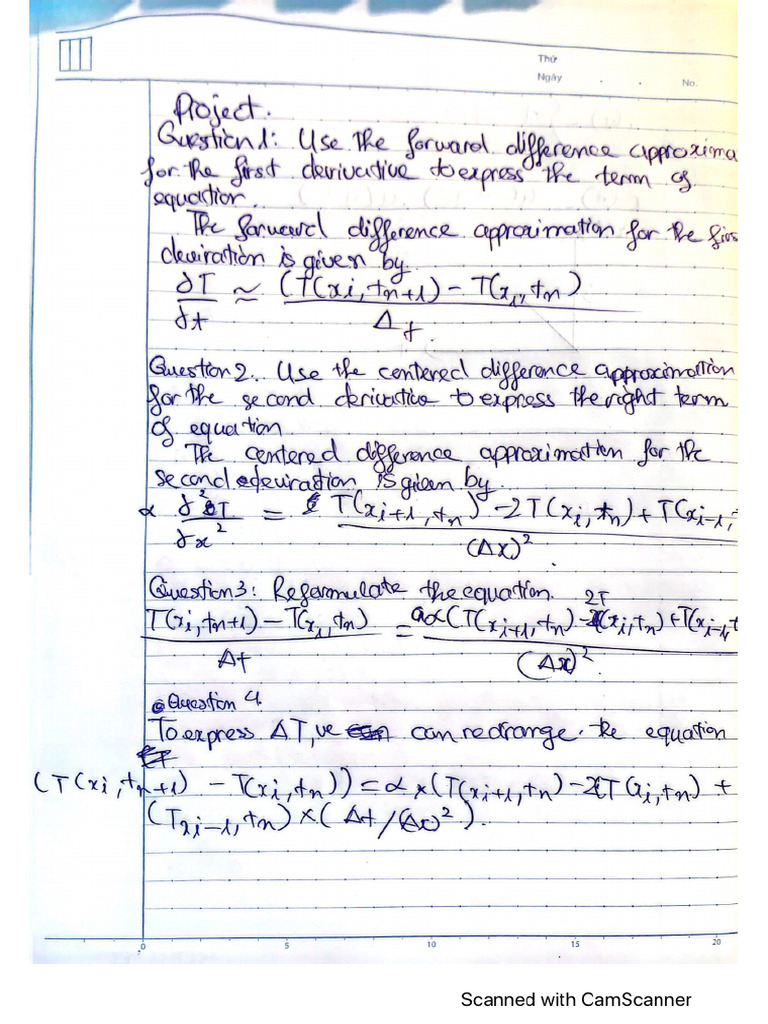 Thứ
Ngày . . No.
Project.
Question1: Use the forward difference approxima
for the first derivative to express the term of
equation.
The forward difference approximation for the firs
deviration is given by
∂T/∂t ≈ (T(xi, tn+1) - T(xi, tn)/Δt.
Question 2. Use the centered difference approximation
for the second derivative to express the right term
of equation
The centered difference approximation for the
second deviration is given by.
α ∂²T/∂x² = T(xi+1, tn) - 2T(xi, tn) + T(xi-1,/(Δx)².
Question 3: Reformulate the equation.
T(xi, tn+1) - T(xi, tn)/Δt = α(T(xi+1, tn) - 2T(xi, tn) + T(xi-1, t/(Δx)².
Question 4.
To express ΔT, we can redrange the equation
(T(xi, tn+1) - T(xi, tn)) = α × (T(xi+1, tn) - 2T(xi, tn) +
(Txi-1, tn) × (Δt/(Δx)²).
0 5 10 15 20
Scanned with CamScanner